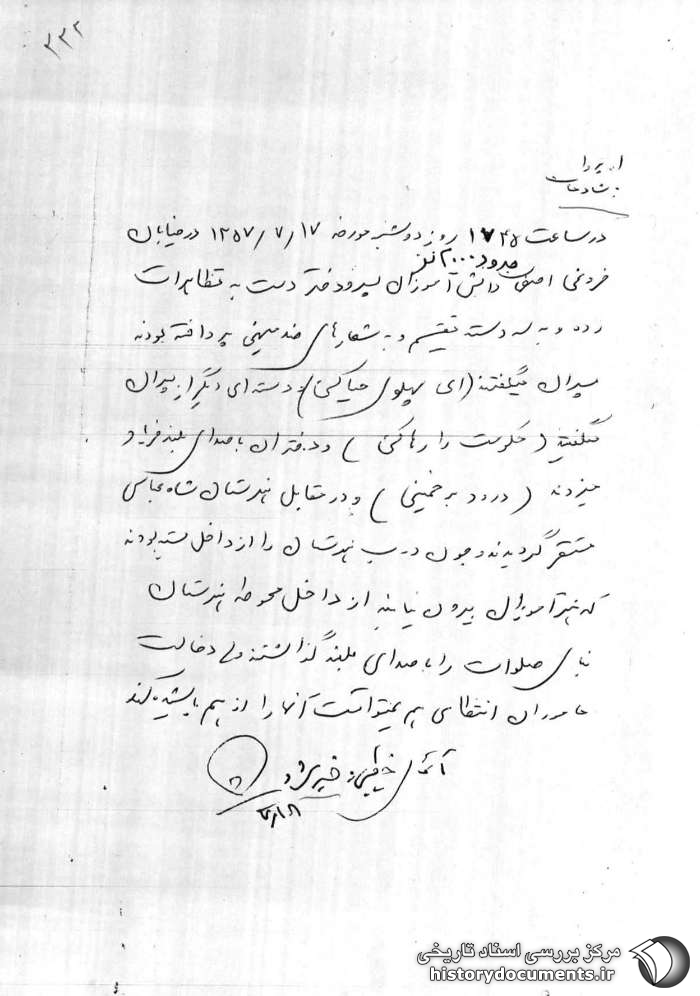 ۳۳۲
در ساعت ۱۷۴۵ روز دوشنبه مورخه ۱۳۵۷/۷/۱۷ در خیابان
حدود ۲۰۰۰ نفر
فروغی اصفهان دانش آموزان پسر و دختر دست به تظاهرات
زده و به سه دسته تقسیم و به شعارهای ضد میهنی پرداخته بودند
پسران میگفتند (ای پهلوی حیا کن) و دسته ای دیگر از پسران
میگفتند (حکومت را رها کن) و دختران با صدای بلند فریاد
میزدند (درود بر خمینی) و در مقابل هنرستان شاه عباسی
مستقر گردیدند و چون درب هنرستان را از داخل بسته بودند
که هنرآموزان بیرون نیایند از داخل محوطه هنرستان
بنای صلوات را با صدای بلند گذاشتند ولی دخالت
مامورین انتظامی هم نمیتوانست آنها را از هم پاشیده کند
آقای
مرکز بررسی اسناد تاریخی
historydocuments.ir